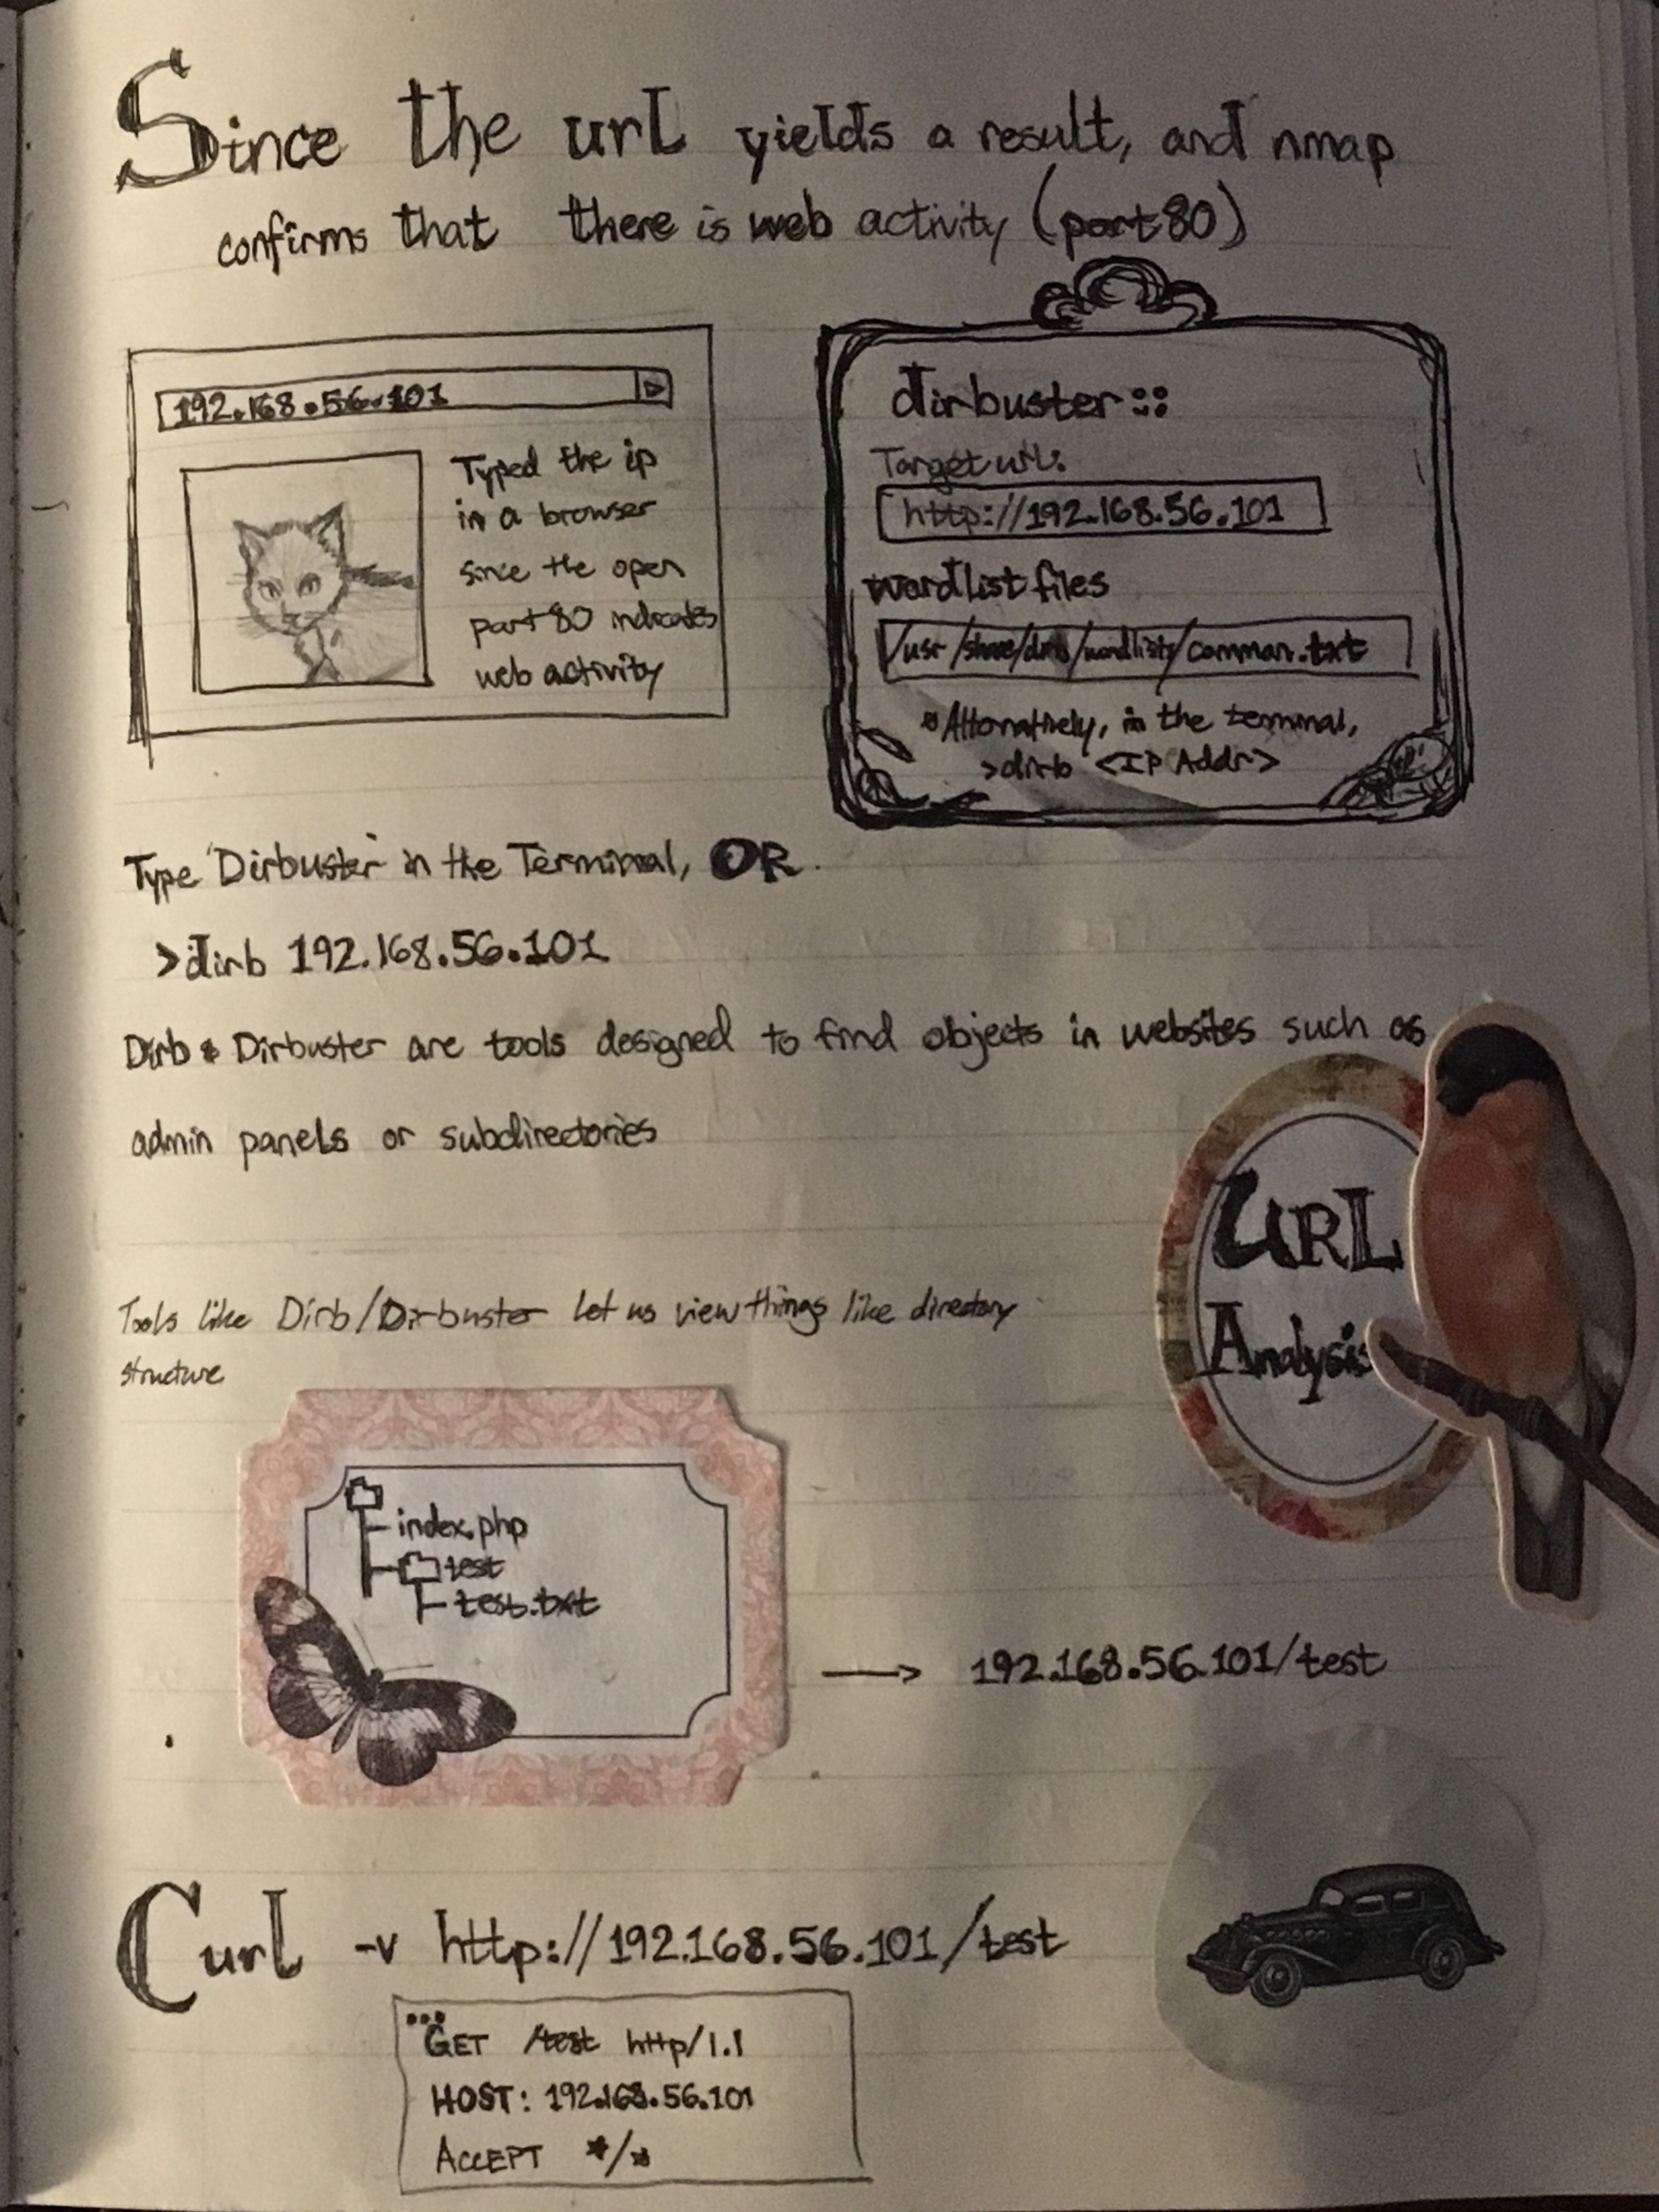 Since the url yields a result, and nmap
confirms that there is web activity (port 80)
192.168.56.101
Typed the ip
in a browser
since the open
port 80 indicates
web activity
dirbuster::
Target url:
http://192.168.56.101
wordlist files
/usr/share/dirb/wordlists/common.txt
*Alternatively, in the terminal,
>dirb <IP Addr>
Type "Dirbuster" in the Terminal, OR
>dirb 192.168.56.101
Dirb & Dirbuster are tools designed to find objects in websites such as
admin panels or subdirectories
URL
Analysis
Tools like Dirb/Dirbuster let us view things like directory
structure
index.php
test
test.txt
→ 192.168.56.101/test
Curl -v http://192.168.56.101/test
GET /test http/1.1
HOST: 192.168.56.101
ACCEPT */*